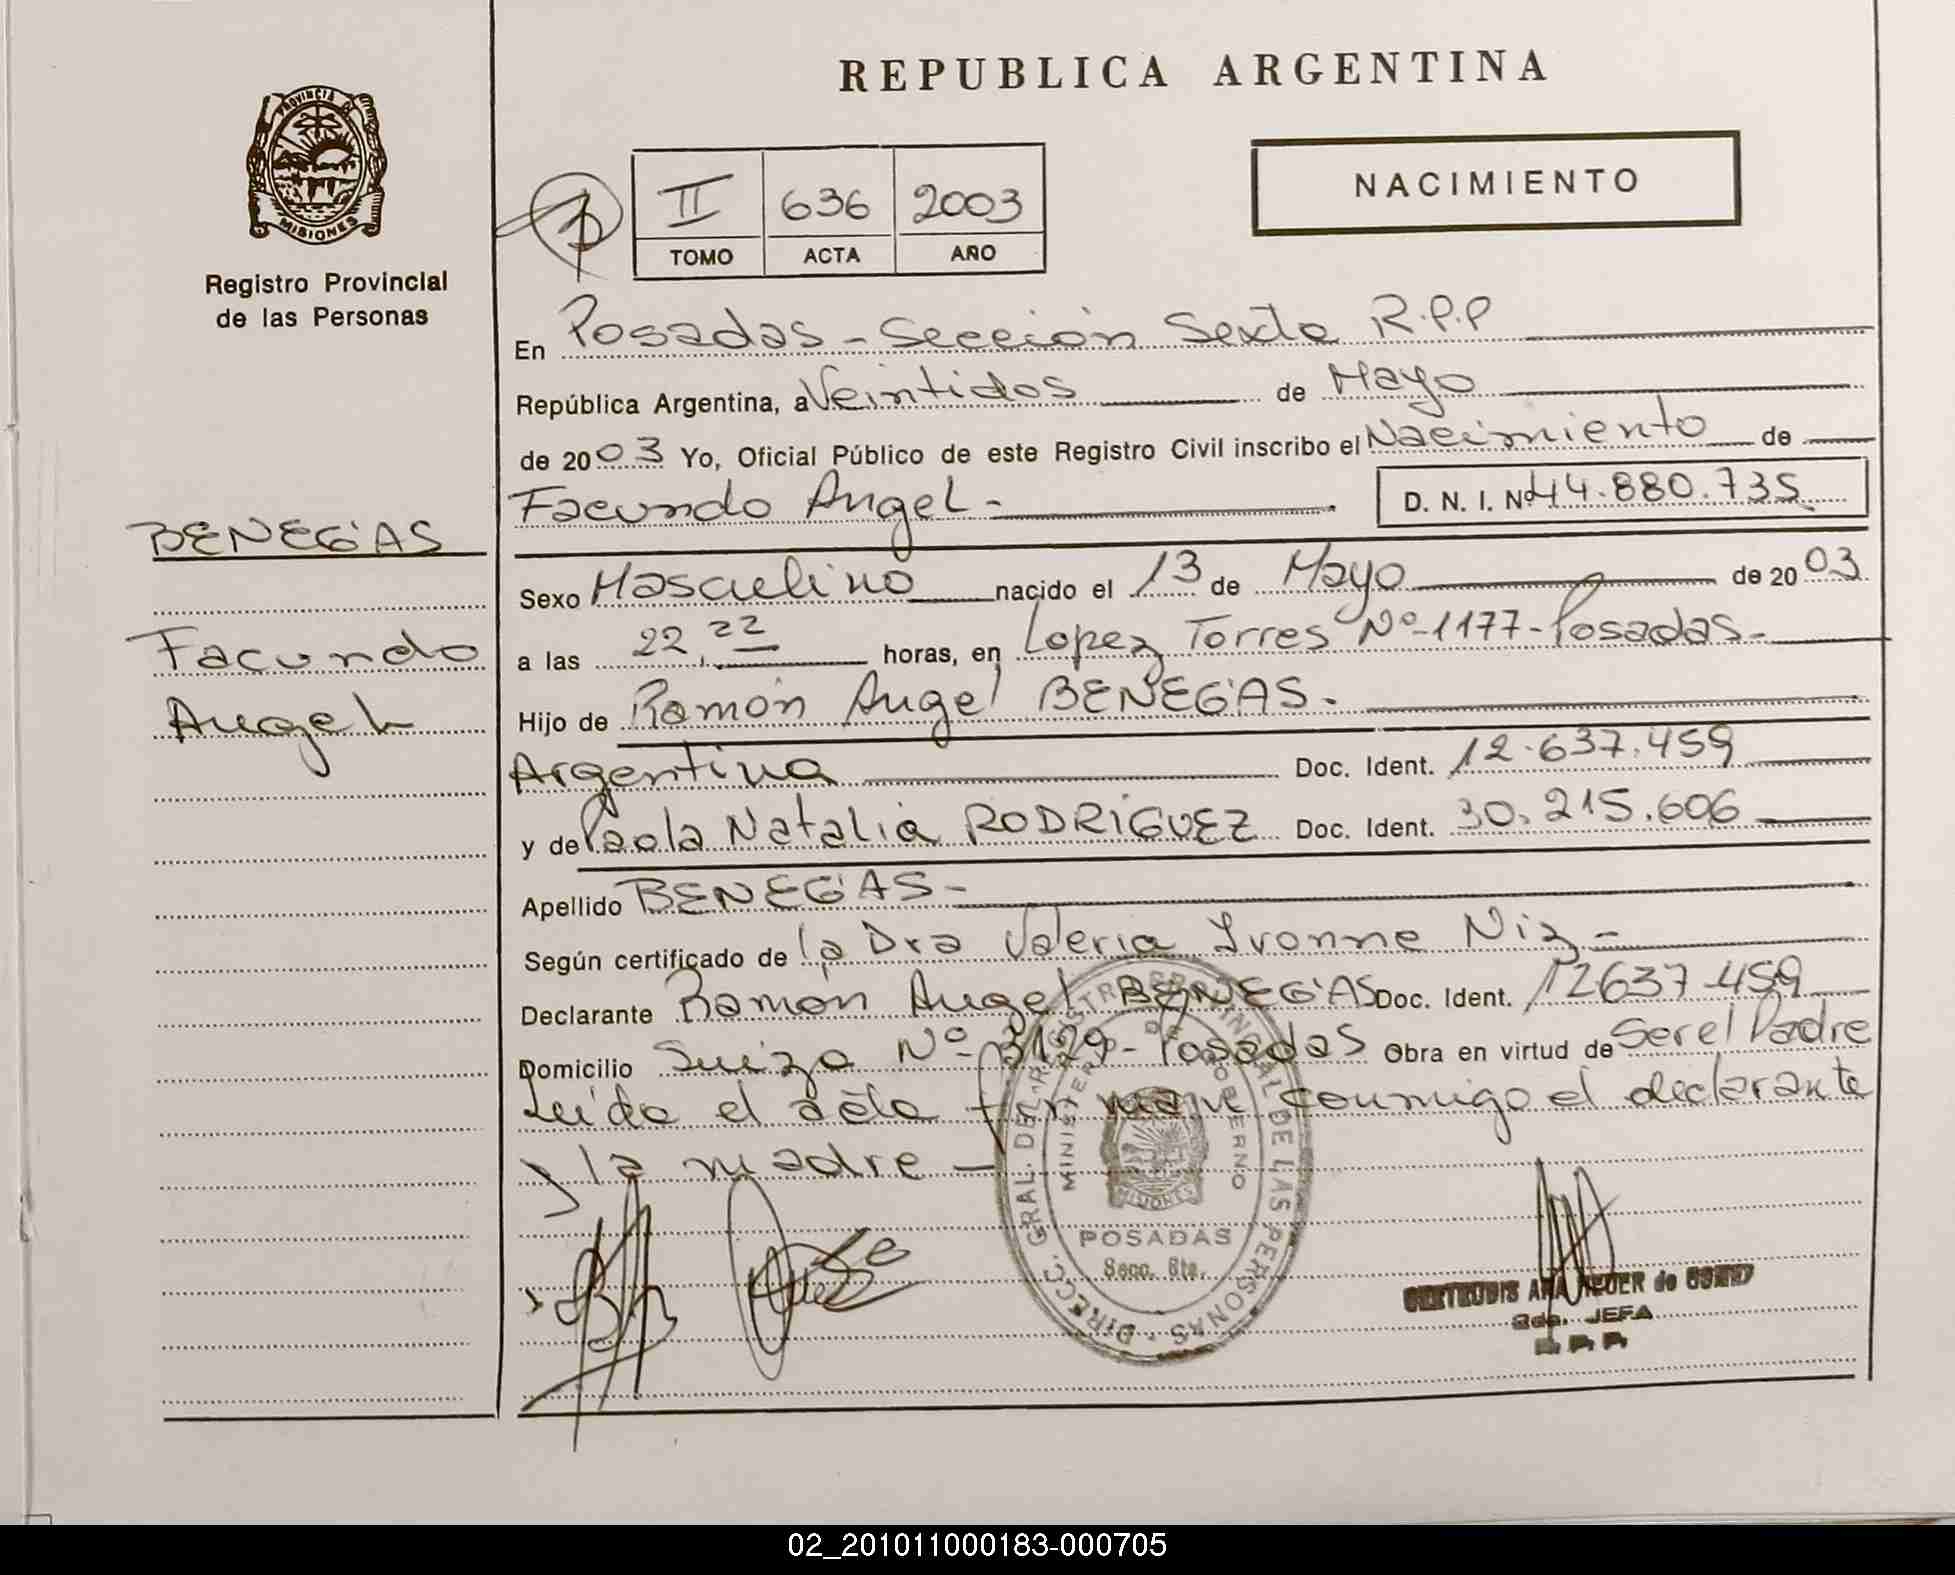 REPUBLICA ARGENTINA
PROVINCIA DE
MISIONES
Registro Provincial
de las Personas
II 636 2003
TOMO ACTA AÑO
NACIMIENTO
En Posadas - Sección Sexta R.P.P
República Argentina, a Veintidos de Mayo
de 2003 Yo, Oficial Público de este Registro Civil inscribo el Nacimiento de
Facundo Angel - D. N. I. Nº 44.880.735
BENEGAS
Sexo Masculino nacido el 13 de Mayo de 2003
Facundo
a las 22,22 horas, en Lopez Torres Nº-1177-Posadas-
Angel
Hijo de Ramón Angel BENEGAS.
Argentina Doc. Ident. 12.637.459
y de Paola Natalia RODRIGUEZ Doc. Ident. 30.215.606
Apellido BENEGAS-
Según certificado de la Dra Valeria Ivonne Niz-
Declarante Ramón Angel BENEGAS Doc. Ident. 12637.459
Domicilio Suiza Nº-3129-Posadas Obra en virtud de Ser el Padre
Leida el acta firman conmigo el declarante
y la madre-
DIRECC. GRAL. DEL REGISTRO PROVINCIAL DE LAS PERSONAS
MINISTERIO DE GOBIERNO
MISIONES
POSADAS
Secc. 6ta.
ANA
JEFA
R.P.P.
02_201011000183-000705